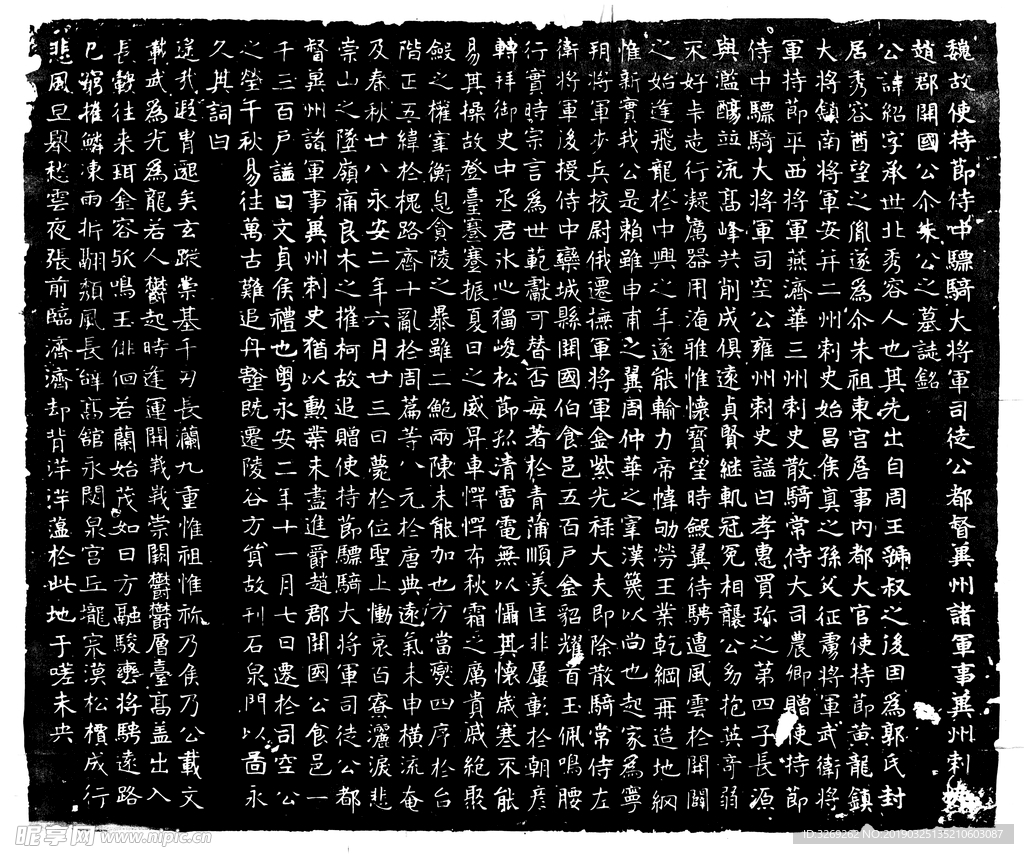 魏故使持節侍中驃騎大将軍司徒公都督冀州諸軍事冀州刺
趙郡開國公尒朱公之墓誌銘
公諱紹字承世北秀容人也其先出自周王號叔之後因為郭氏封
居秀容酋望之胤遂為尒朱祖東宫詹事内都大官使持節黄龍鎮
大将鎮南将軍安并二州刺史始昌侯真之孫父征虜将軍武衛将
軍持節平西将軍燕濟華三州刺史散騎常侍大司農卿贈使持節
侍中驃騎大将軍司空公雍州刺史謚曰孝惠買珎之第四子長源
與濫觴並流髙峰共削成俱遠貞賢継軌冠冕相襲公㓜抱英奇弱
不好弄志行凝厲器用淹雅惟懐寳望時斂翼待騁遭風雲於開闢
之始逢飛龍於中興之年遂能輸力帝幃劬勞王業乾綱再造地網
惟新實我公是賴雖申甫之翼周仲華之宰漢篾以尚也起家為寧
朔将軍步兵挍尉俄遷撫軍将軍金紫光禄大夫即除散騎常侍左
衛将軍後授侍中欒城縣開國伯食邑五百戸金貂耀首玉佩鳴腰
行實時宗言為世範獻可替否毎著於青蒲順美匡非屢彰於朝彦
轉拜御史中丞君氷心獨峻松節孤清雷電無以懾其懐歳寒不能
易其操故登臺謇謇振夏日之威昇車悍悍布秋霜之厲貴戚絶聚
斂之權宰衡息貪陵之暴雖二鮑兩陳未能加也方當爕四序於台
階正五緯於槐路齊十亂於周篇等八元於唐典遠氣未申横流奄
及春秋廿八永安二年六月廿三日薨於位聖上慟哀百寮灑淚悲
崇山之墜嶺痛良木之摧柯故追贈使持節驃騎大将軍司徒公都
督冀州諸軍事冀州刺史猶以勲業未盡進爵趙郡開國公食邑一
千三百戸謚曰文貞侯禮也粤永安二年十一月七日遷於司空公
之塋千秋易往萬古難追丹壑旣遷陵谷方貿故刊石泉門以啚永
久其詞曰
遥我遐胄邈矣玄蹤崇基千刃長瀾九重惟祖惟祢乃侯乃公載文
載武為光為龍若人欝起時逢運開峩峩崇闕欝欝層臺髙盖出入
長轂往来珥金容與鳴玉俳佪若蘭始茂如日方融駿轡将騁遠路
已窮摧鱗凍雨折翮頽風長辭髙館永閟泉宫丘壠宗漠松檟成行
悲風旦舉愁雲夜張前臨濟濟却背洋洋藴於此地于嗟未央
昵享网 www.nipic.cn
ID:3269262 NO:20190325135210603087